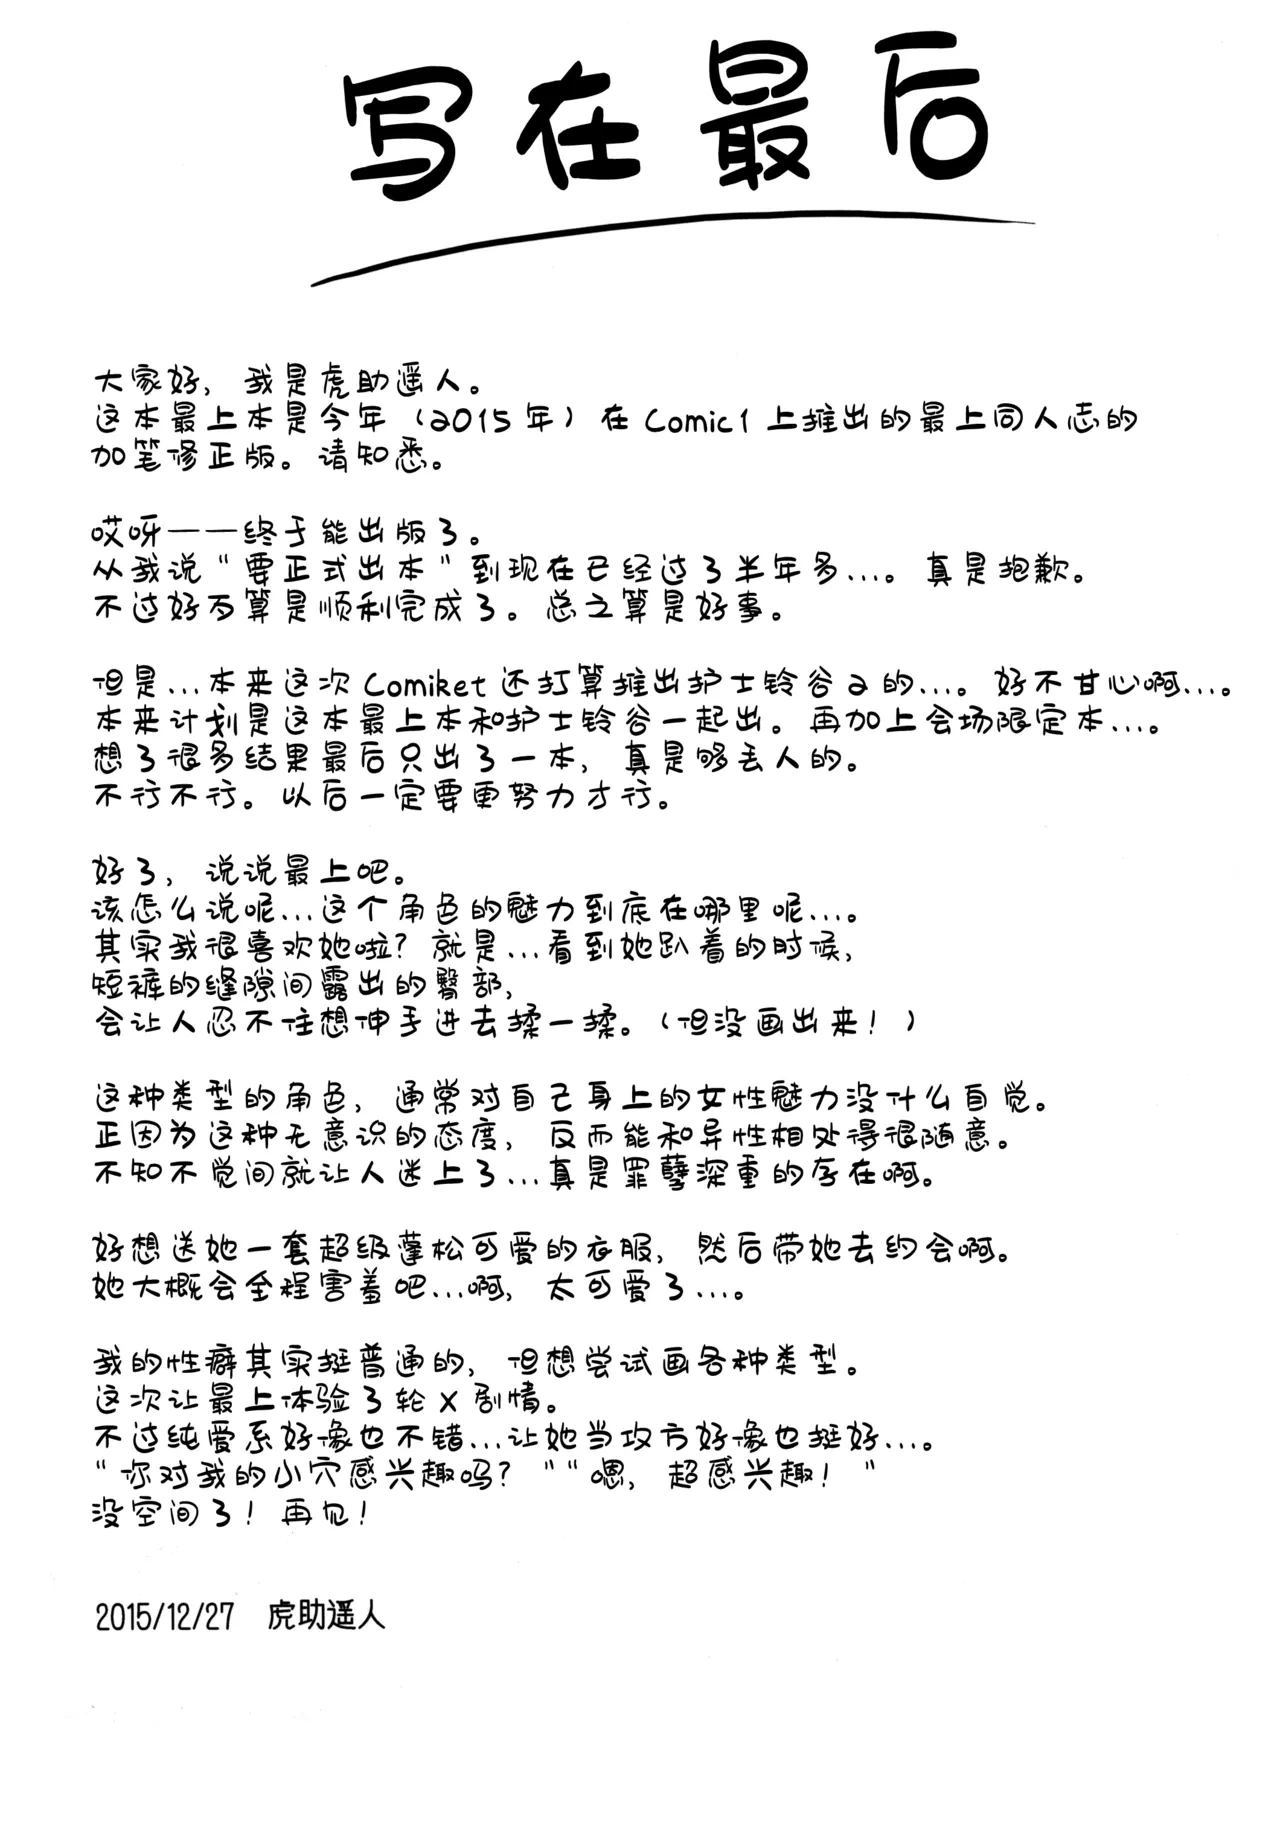 写在最后
大家好，我是虎助遥人。
这本最上本是今年（2015年）在Comic1上推出的最上同人志的
加笔修正版。请知悉。
哎呀——终于能出版了。
从我说“要正式出本”到现在已经过了半年多...。真是抱歉。
不过好歹算是顺利完成了。总之算是好事。
但是...本来这次Comiket还打算推出护士铃谷2的...。好不甘心啊...。
本来计划是这本最上本和护士铃谷一起出。再加上会场限定本...。
想了很多结果最后只出了一本，真是够丢人的。
不行不行。以后一定要更努力才行。
好了，说说最上吧。
该怎么说呢...这个角色的魅力到底在哪里呢...。
其实我很喜欢她啦？就是...看到她趴着的时候，
短裤的缝隙间露出的臀部，
会让人忍不住想伸手进去揉一揉。（但没画出来！）
这种类型的角色，通常对自己身上的女性魅力没什么自觉。
正因为这种无意识的态度，反而能和异性相处得很随意。
不知不觉间就让人迷上了...真是罪孽深重的存在啊。
好想送她一套超级蓬松可爱的衣服，然后带她去约会啊。
她大概会全程害羞吧...啊，太可爱了...。
我的性癖其实挺普通的，但想尝试画各种类型。
这次让最上体验了轮X剧情。
不过纯爱系好像也不错...让她当攻方好像也挺好...。
“你对我的小穴感兴趣吗？”“嗯，超感兴趣！”
没空间了！再见！
2015/12/27 虎助遥人